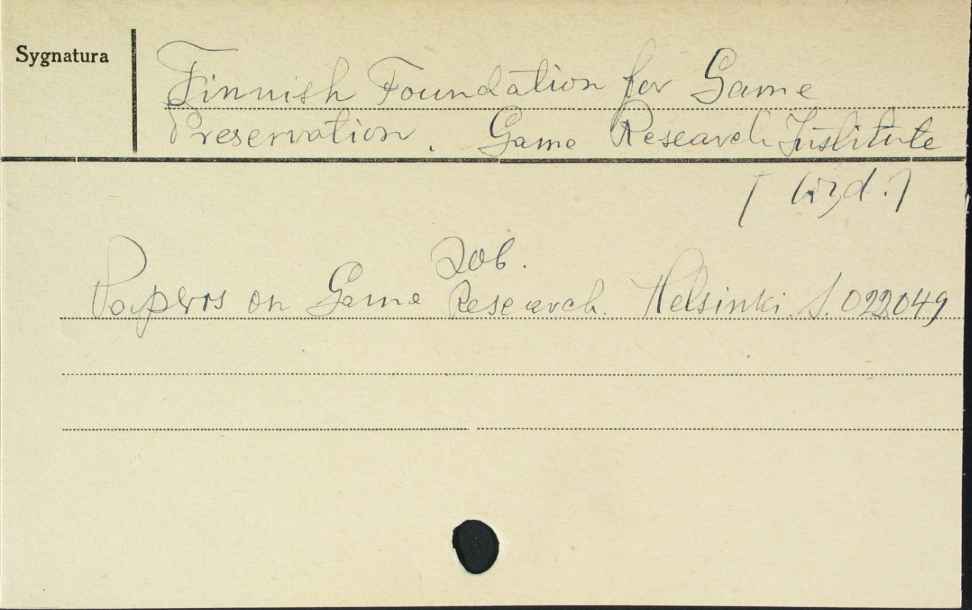 Sygnatura
Finnish Foundation for Game
Preservation. Game Research Institute
[wyd.]
Zob.
Papers on Game Research. Helsinki. S. 022049